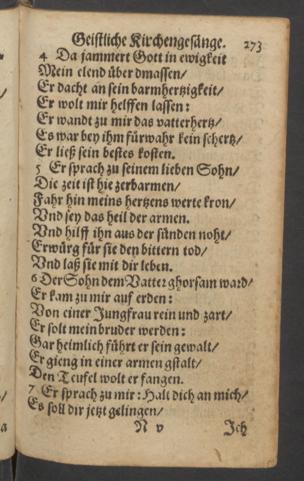 Geistliche Kirchengesänge. 273
4 Da jammert Gott in ewigkeit
Mein elend über dmassen/
Er dacht an sein barmhertzigkeit/
Er wolt mir helffen lassen:
Er wandt zu mir das vatterhertz/
Es war bey ihm fürwahr kein schertz/
Er ließ sein bestes kosten.
5 Er sprach zu seinem lieben Sohn/
Die zeit ist hie zerbarmen/
Fahr hin meins hertzens werte kron/
Vnd sey das heil der armen.
Vnd hilff ihn aus der sünden noht/
Erwürg für sie den bittern tod/
Vnd laß sie mit dir leben.
6 Der Sohn dem Vatter ghorsam ward/
Er kam zu mir auf erden:
Von einer Jungfrau rein und zart/
Er solt mein bruder werden:
Gar heimlich führt er sein gewalt/
Er gieng in einer armen gstalt/
Den Teufel wolt er fangen.
7 Er sprach zu mir: Halt dich an mich/
Es soll dir jetzt gelingen/
N v Jch